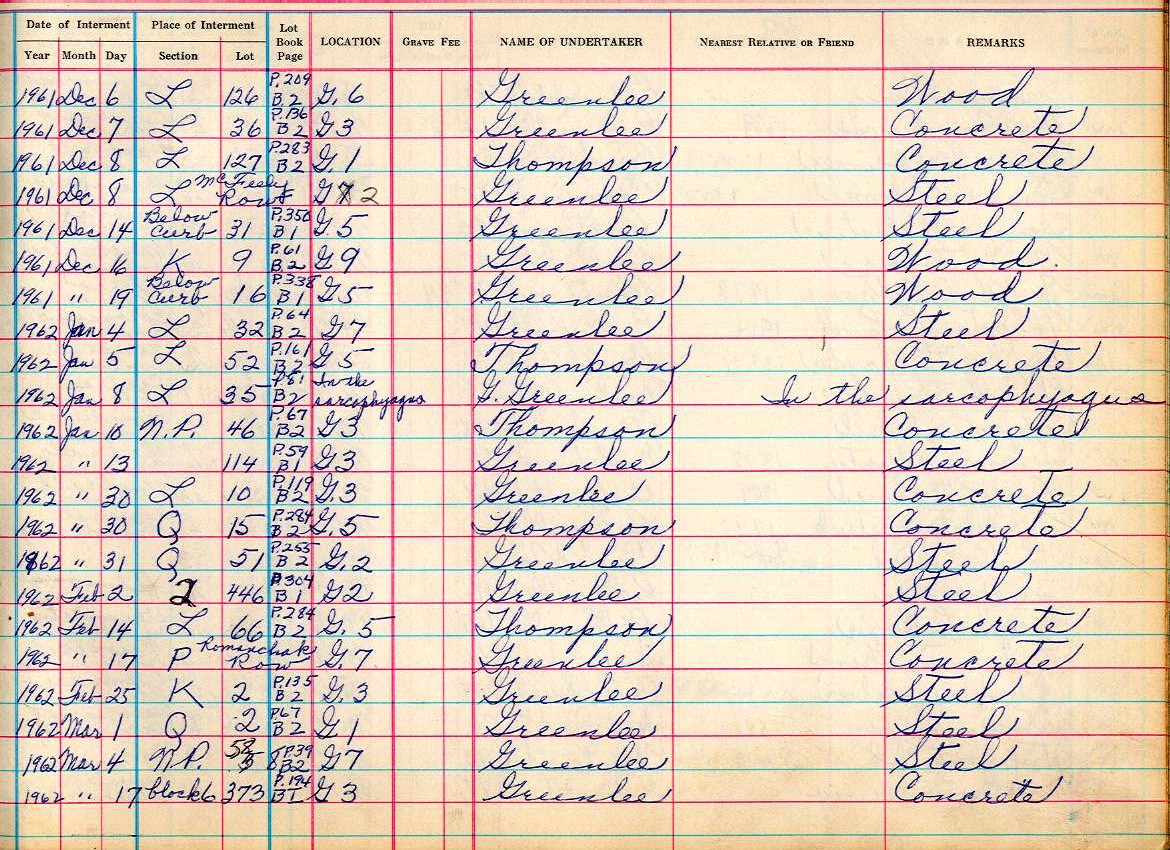 Date of Interment Place of Interment Lot Book Page LOCATION GRAVE FEE NAME OF UNDERTAKER NEAREST RELATIVE OR FRIEND REMARKS
Year Month Day Section Lot
1961 Dec 6 L 126 P. 209 B. 2 G. 6 Greenlee Wood
1961 Dec 7 L 36 P. 136 B 2 G 3 Greenlee Concrete
1961 Dec 8 L 127 P. 283 B 2 G. 1 Thompson Concrete
1961 Dec 8 L McFeely Row G 2 Greenlee Steel
1961 Dec 14 Below Curb 31 P. 350 B 1 G. 5 Greenlee Steel
1961 Dec 16 K 9 P. 61 B. 2 G 9 Greenlee Wood.
1961 " 19 Below Curb 16 P. 338 B 1 G. 5 Greenlee Wood
1962 Jan 4 L 32 P. 64 B. 2 G 7 Greenlee Steel
1962 Jan 5 L 52 P. 161 B 2 G. 5 Thompson Concrete
1962 Jan 8 L 35 P. 81 B 2 In the sarcophyagus G. Greenlee In the sarcophyagus
1962 Jan 10 N.P. 46 P. 67 B2 G 3 Thompson Concrete
1962 " 13 114 P. 59 B 1 G. 3 Greenlee Steel
1962 " 30 L 10 P. 119 B 2 G. 3 Greenlee Concrete
1962 " 30 Q 15 P. 284 B 2 G. 5 Thompson Concrete
1962 " 31 Q 51 P. 255 B 2 G. 2 Greenlee Steel
1962 Feb 2 2 446 P 304 B 1 G 2 Greenlee Steel
1962 Feb 14 L 66 P. 284 B 2 G. 5 Thompson Concrete
1962 " 17 P Romanchak Row G. 7 Greenlee Concrete
1962 Feb 25 K 2 P. 135 B 2 G. 3 Greenlee Steel
1962 Mar 1 Q 2 P67 B 2 G 1 Greenlee Steel
1962 Mar 4 N.P. 58 P. 39 B2 G 7 Greenlee Steel
1962 " 17 block 6 373 P. 194 B I G 3 Greenlee Concrete